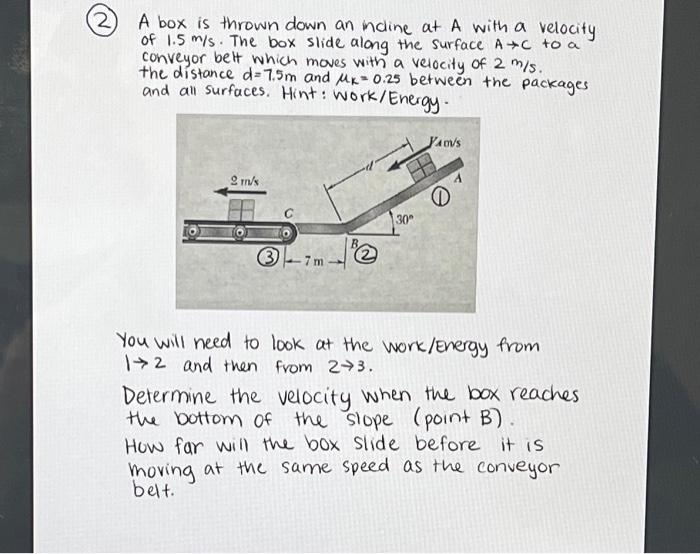 2 A box is thrown down an incline at A with a velocity
of 1.5 m/s. The box slide along the surface A→C to a
conveyor belt which moves with a velocity of 2 m/s.
the distance d=7.5m and μK=0.25 between the packages
and all surfaces. Hint: Work/Energy.
VA m/s
d
2 m/s
A
1
C
30°
B
3
7 m
2
You will need to look at the work/Energy from
1→2 and then from 2→3.
Determine the velocity when the box reaches
the bottom of the slope (point B).
How far will the box slide before it is
moving at the same speed as the conveyor
belt.